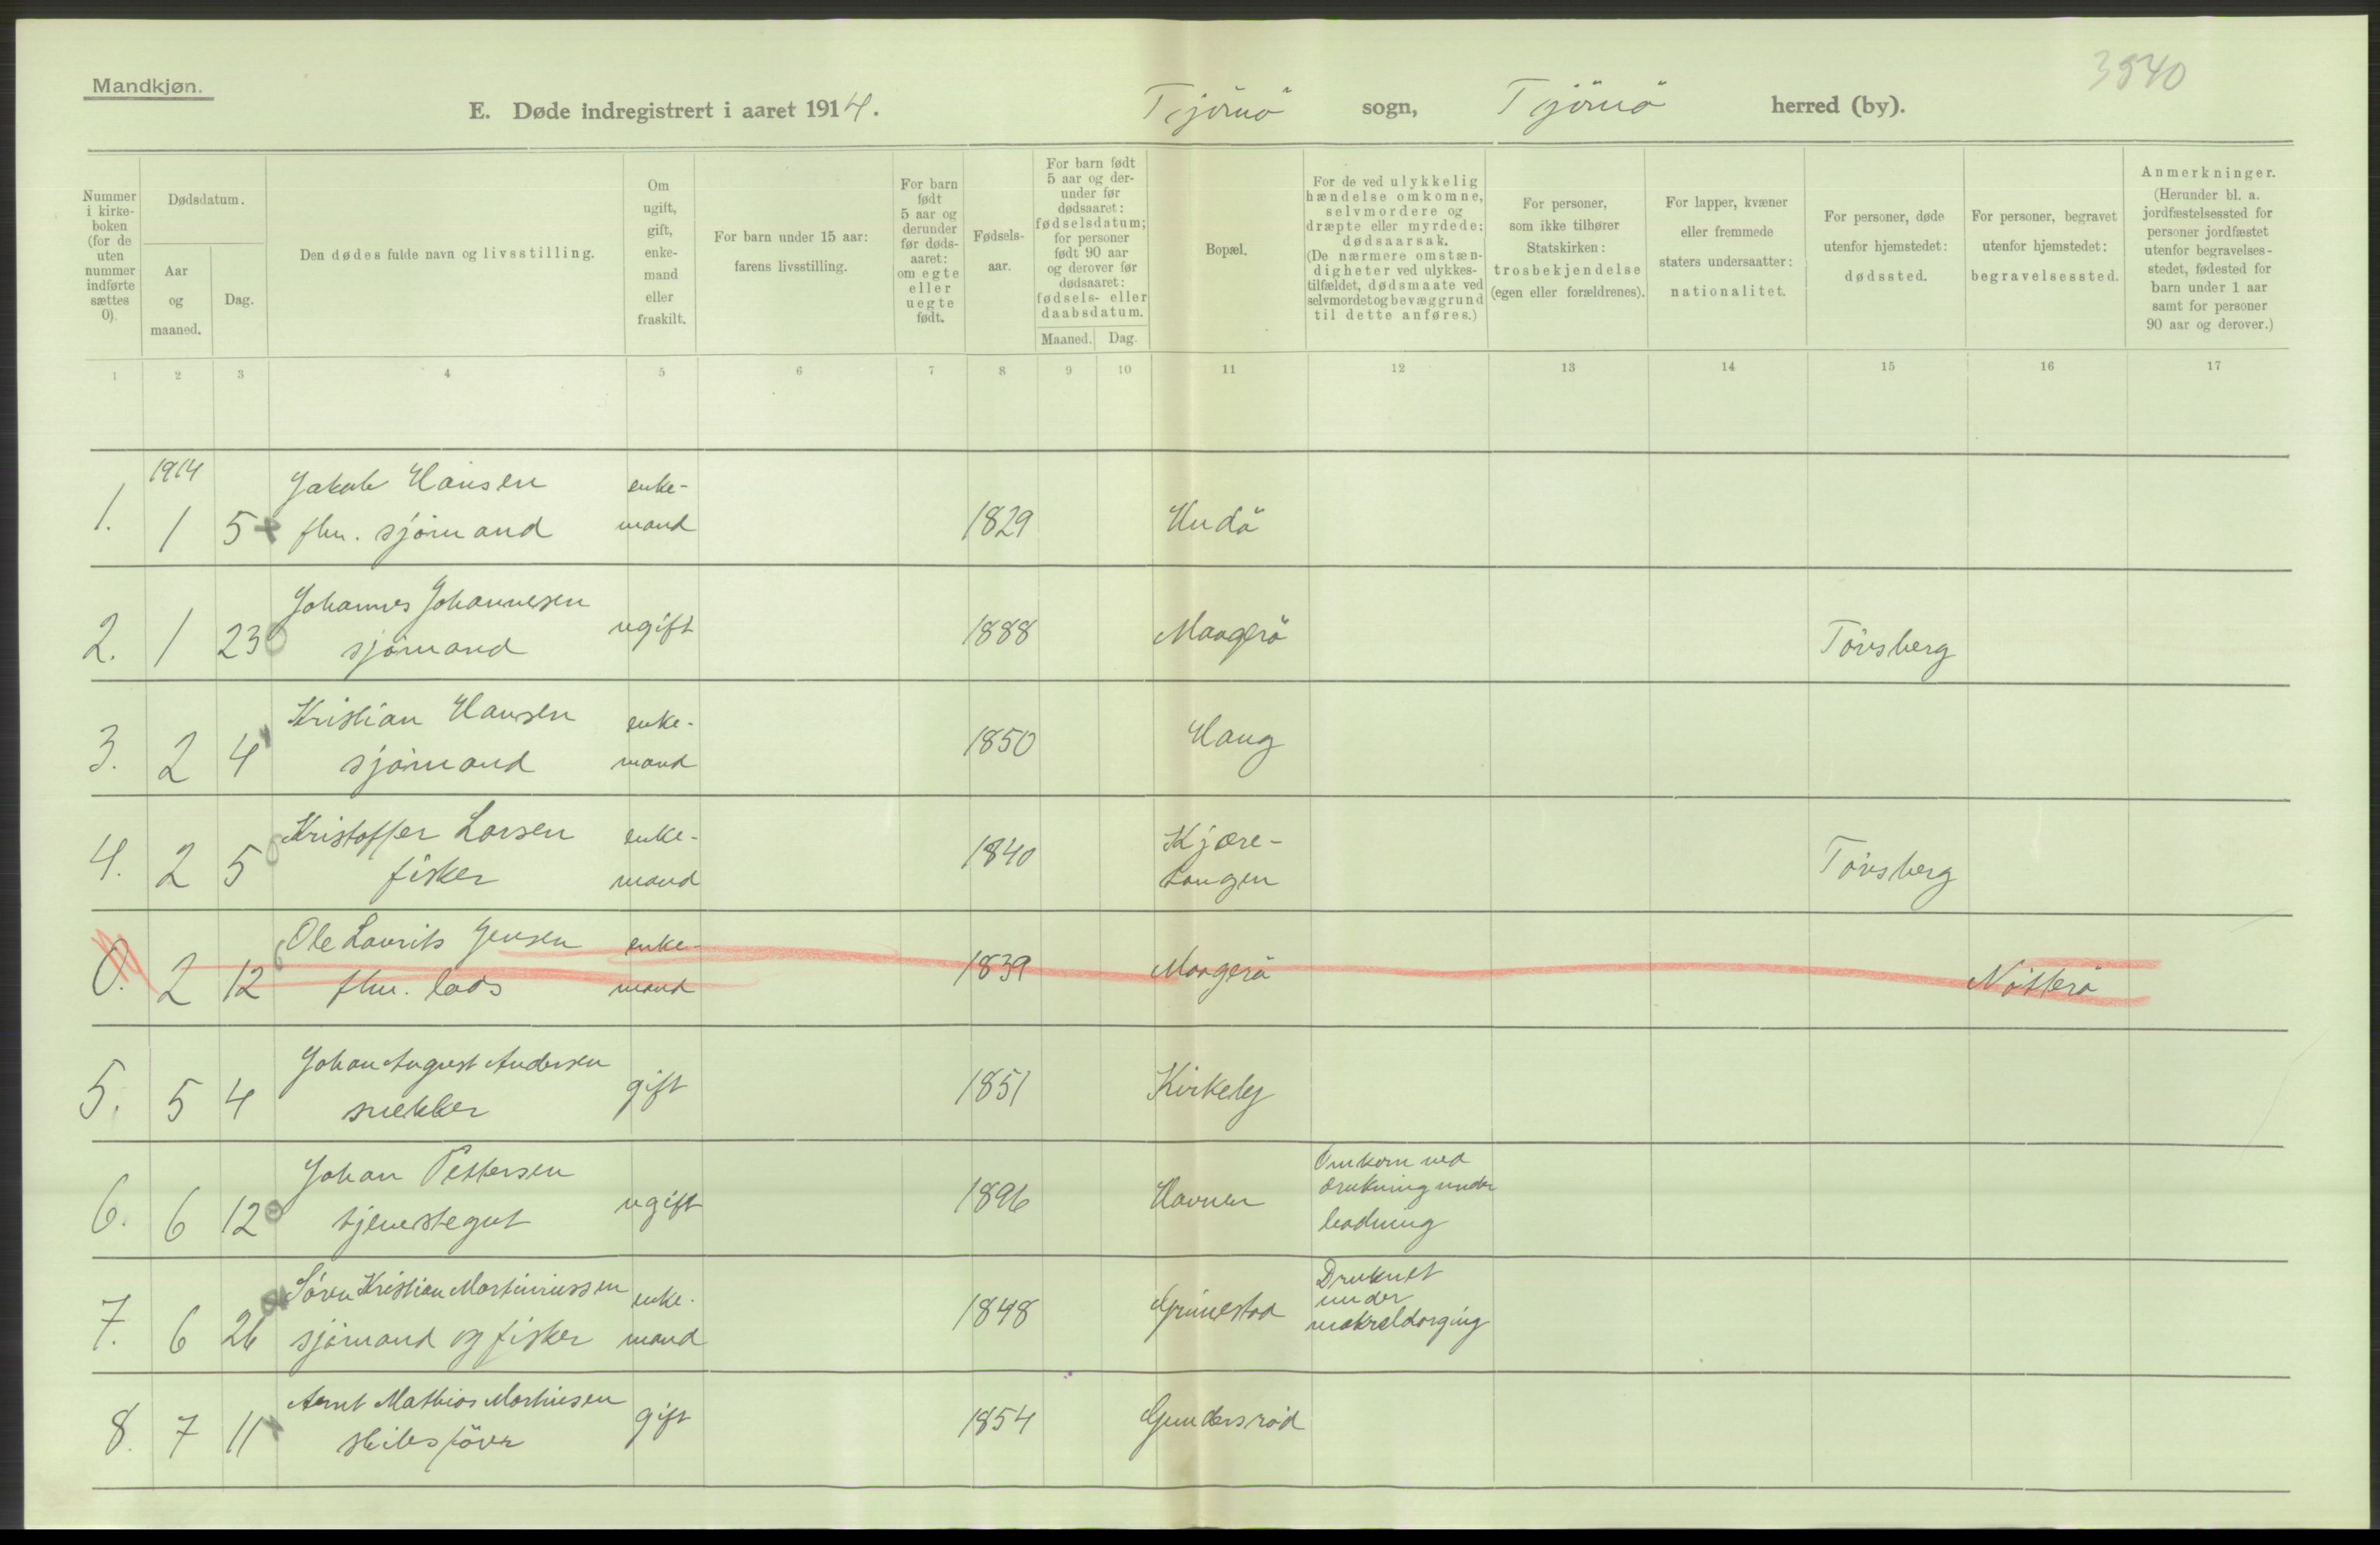 3540
Mandkjøn.
E. Døde indregistrert i aaret 1914. Tjömö sogn, Tjömö herred (by).
Nummer i kirke-boken (for de uten nummer indførte sættes 0).
Dødsdatum.
Aar og maaned.
Dag.
Den dødes fulde navn og livsstilling.
Om ugift, gift, enke-mand eller fraskilt.
For barn under 15 aar: farens livsstilling.
For barn født 5 aar og derunder før døds-aaret: om egte eller uegte født.
Fødsels-aar.
For barn født 5 aar og der-under før dødsaaret: fødselsdatum; for personer født 90 aar og derover før dødsaaret: fødsels- eller daabsdatum.
Maaned.
Dag.
Bopæl.
For de ved ulykkelig hændelse omkomne, selvmordere og dræpte eller myrdede: dødsaarsak. (De nærmere omstæn-digheter ved ulykkes-tilfældet, dødsmaate ved selvmordet og bevæggrund til dette anføres.)
For personer, som ikke tilhører Statskirken: trosbekjendelse (egen eller forældrenes).
For lapper, kvæner eller fremmede staters undersaatter: nationalitet.
For personer, døde utenfor hjemstedet: dødssted.
For personer, begravet utenfor hjemstedet: begravelsessted.
Anmerkninger. (Herunder bl. a. jordfæstelsessted for personer jordfæstet utenfor begravelses-stedet, fødested for barn under 1 aar samt for personer 90 aar og derover.)
1 2 3 4 5 6 7 8 9 10 11 12 13 14 15 16 17
1914
Jakob Hansen enke-
1. 1 5 fhv. sjömand mand 1829 Hudö
Johannes Johannesen
2. 1 23 sjömand ugift 1888 Maagerö Tönsberg
Kristian Hansen enke-
3. 2 4 sjömand mand 1850 Haug
Kristoffer Larsen enke- Kjære-
4. 2 5 fisker mand 1840 tangen Tönsberg
Ole Laurits Jensen enke-
0. 2 12 fhv. lods mand 1839 Maagerö Nötterö
Johan August Andersen
5. 5 4 snekker gift 1851 Kirkeby
Johan Pettersen Omkom ved
6. 6 12 tjenestegut ugift 1896 Havnen drukning under
badning
Sören Kristian Martiniussen enke- Druknet
7. 6 26 sjömand og fisker mand 1848 Grimestad under
makreldorging
Arnt Mathias Mathisen
8. 7 11 skibsförer gift 1854 Gundersröd